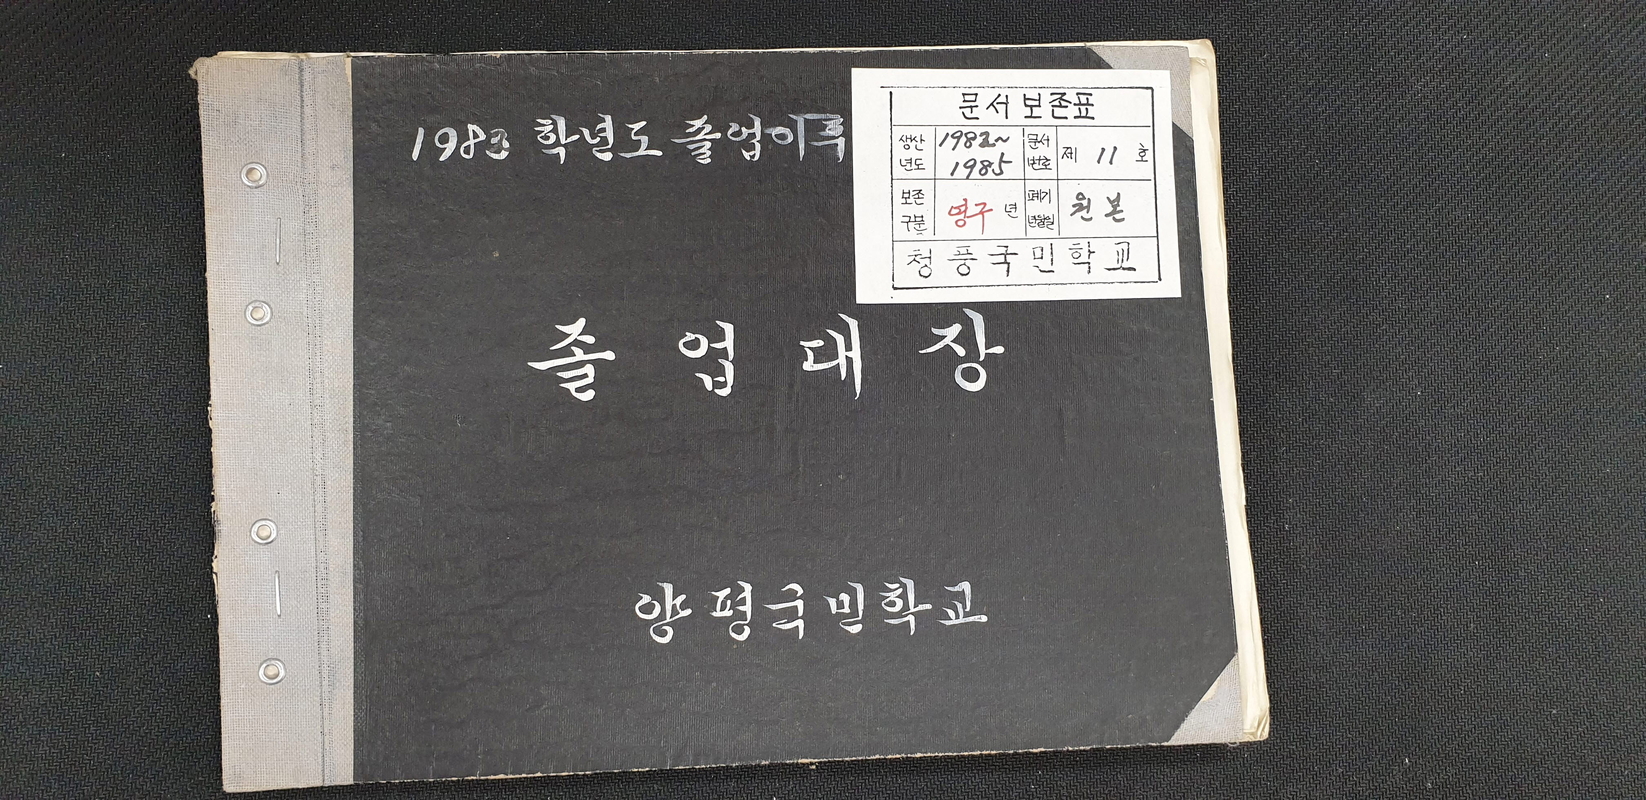 1983 학년도 졸업이후
문서보존표
생산년도 1982~1985 문서번호 제 11 호
보존구분 영구 년 폐기년월일 원본
청풍국민학교
졸업대장
양평국민학교